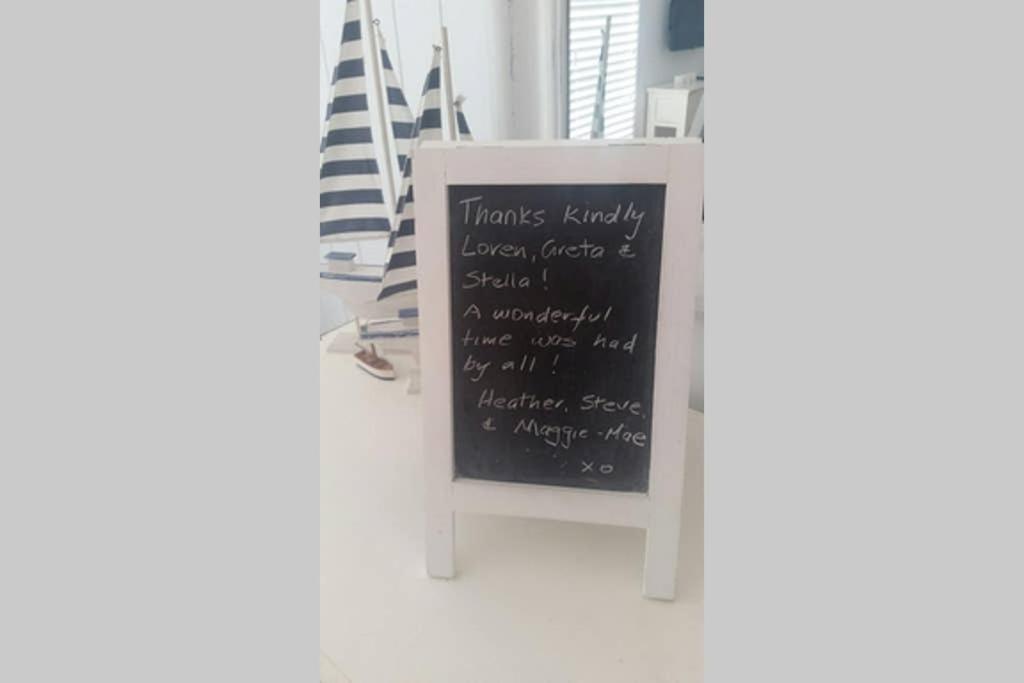 Thanks kindly
Loren, Greta &
Stella!
A wonderful
time was had
by all!
Heather, Steve,
& Maggie-Mae
xo